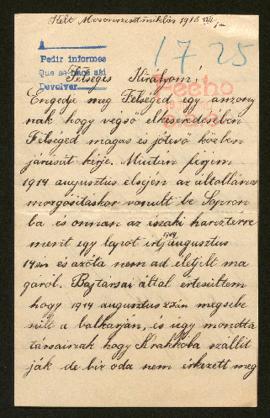 Kelt Mosonszentmiklós 1916 VII/1
Pedir informes
Que se hace aki
Devolver
1725
Hecho
Felséges Királyom!
Engedje meg Felséged egy asszony
nak hogy végső elkeseredésében
Felséged magas és jótevő közben
járását kérje. Miután férjem
1914 augusztus elsején az általános
mozgósításkor vonult be Sopron
ba és onnan az északi harcztérre
ment egy lapot írt 1914 augusztus
14én és azóta nem ad életjelt ma
gáról. Bajtársai által értesültem
hogy 1914 augusztus 22én megsebe
sült a balkarján, és úgy mondta
társainak hogy Krakkóba szállít
ják de bír oda nem érkezett meg